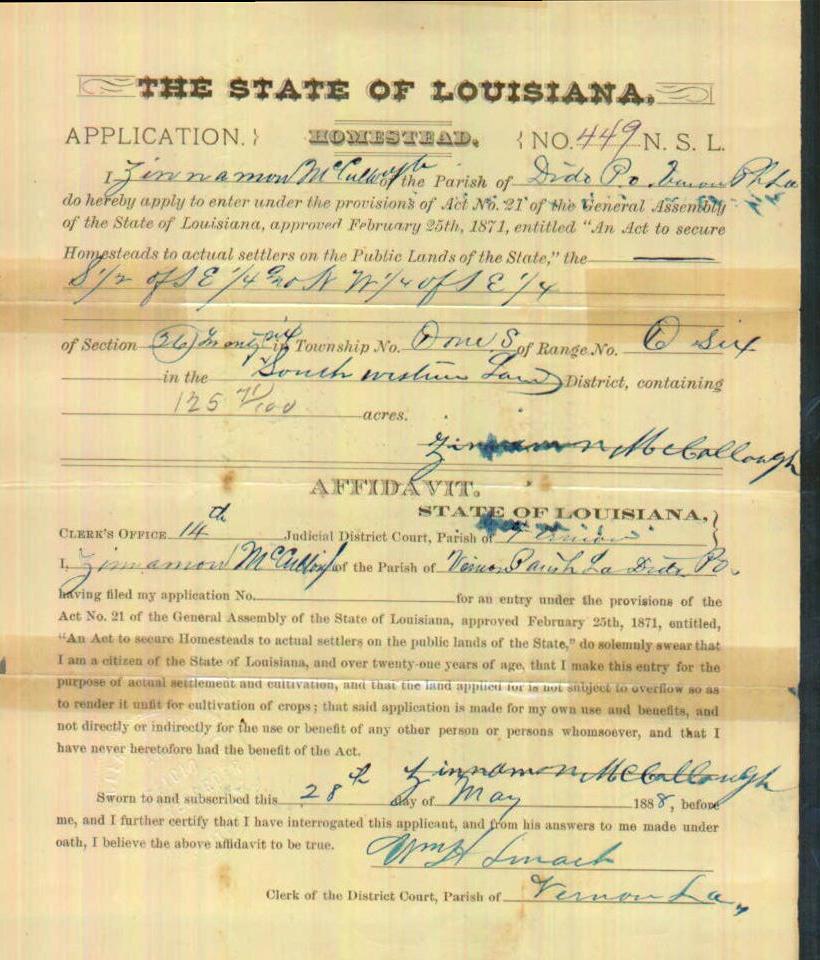 THE STATE OF LOUISIANA,
APPLICATION. } HOMESTEAD. { NO. 449 N. S. L.
I Zinnamon McCullough of the Parish of Dido P.o. Vernon Ph La
do hereby apply to enter under the provisions of Act No. 21 of the General Assembly
of the State of Louisiana, approved February 25th, 1871, entitled "An Act to secure
Homesteads to actual settlers on the Public Lands of the State," the
S 1/2 of S E 1/4 N W 1/4 of S E 1/4
of Section (26) Twenty six in Township No. One S of Range No. 6 six
in the South western Land District, containing
125 71/100 acres.
Zinnamon McCollough
AFFIDAVIT.
STATE OF LOUISIANA, }
CLERK'S OFFICE 14th Judicial District Court, Parish of Vernon
I, Zinnamon McCullough of the Parish of Vernon Parish La Dido Po.
having filed my application No. for an entry under the provisions of the
Act No. 21 of the General Assembly of the State of Louisiana, approved February 25th, 1871, entitled,
"An Act to secure Homesteads to actual settlers on the public lands of the State," do solemnly swear that
I am a citizen of the State of Louisiana, and over twenty-one years of age, that I make this entry for the
purpose of actual settlement and cultivation, and that the land applied for is not subject to overflow so as
to render it unfit for cultivation of crops; that said application is made for my own use and benefits, and
not directly or indirectly for the use or benefit of any other person or persons whomsoever, and that I
have never heretofore had the benefit of the Act.
Zinnamon McCollough
Sworn to and subscribed this 28th day of May 1888, before
me, and I further certify that I have interrogated this applicant, and from his answers to me made under
oath, I believe the above affidavit to be true.
Wm H Smart
Clerk of the District Court, Parish of Vernon La,